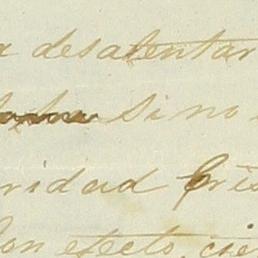 a desalentar
sino
ridad Cris
Con efecto, cie